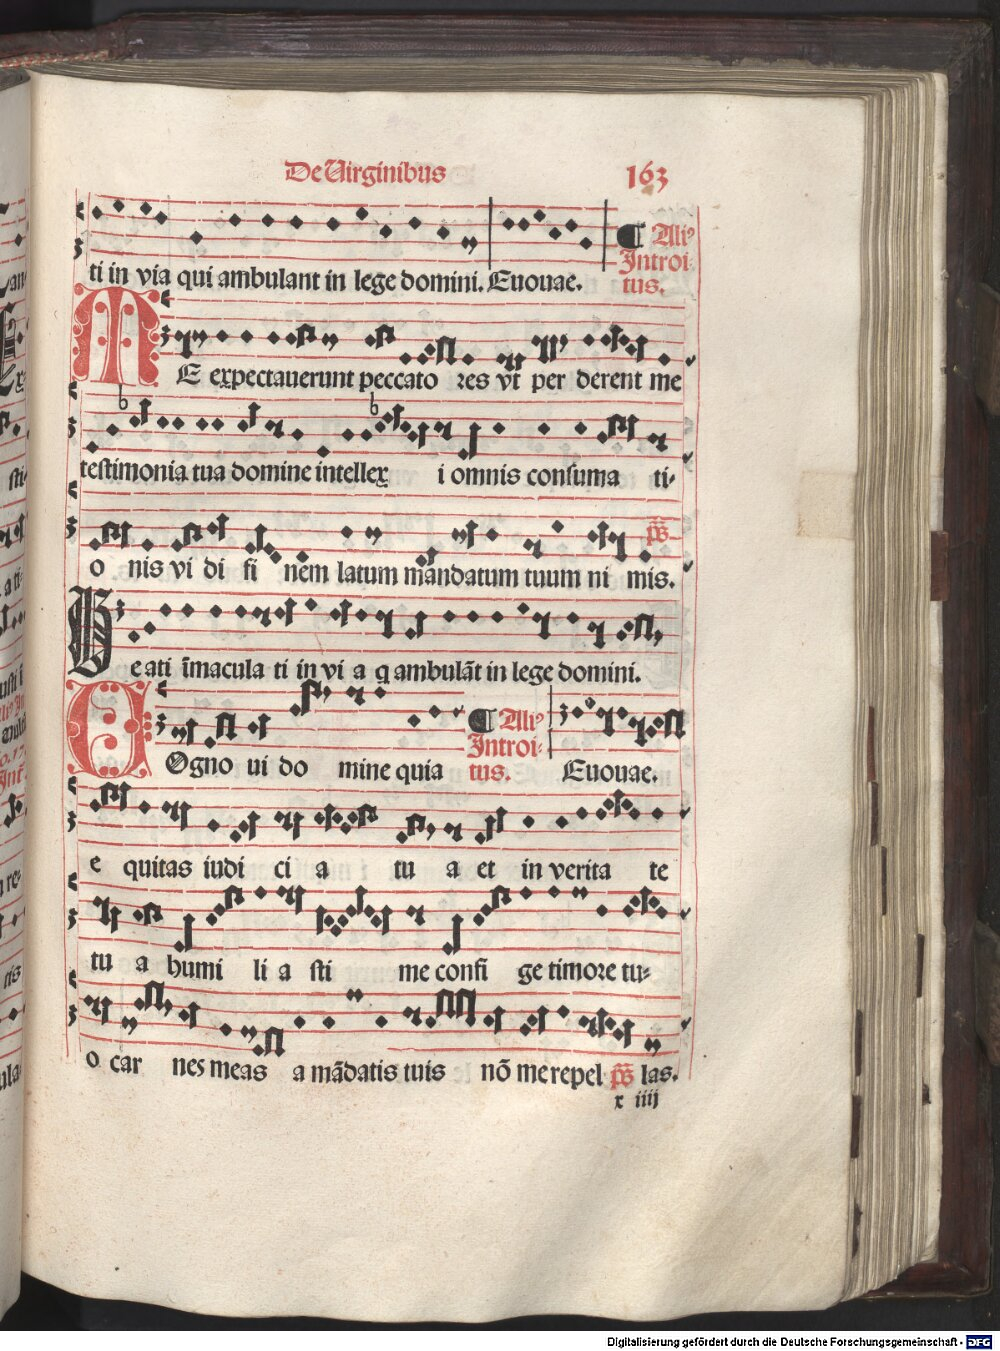 De Uirginibus 163
ti in via qui ambulant in lege domini. Euouae. ¶ Aliꝰ
Introi-
tus.
ME expectauerunt peccato res vt per derent me
testimonia tua domine intellex i omnis consuma ti-
o nis vi di fi nem latum mandatum tuum ni mis. p̄s
Be ati īmacula ti in vi a q ambulāt in lege domini.
COgno ui do mine quia ¶ Aliꝰ
Introi-
tus. Euouae.
e quitas iudi ci a tu a et in verita te
tu a humi li a sti me confi ge timore tu-
o car nes meas a mādatis tuis nō me repel p̄s las.
x iiij
Digitalisierung gefördert durch die Deutsche Forschungsgemeinschaft - DFG